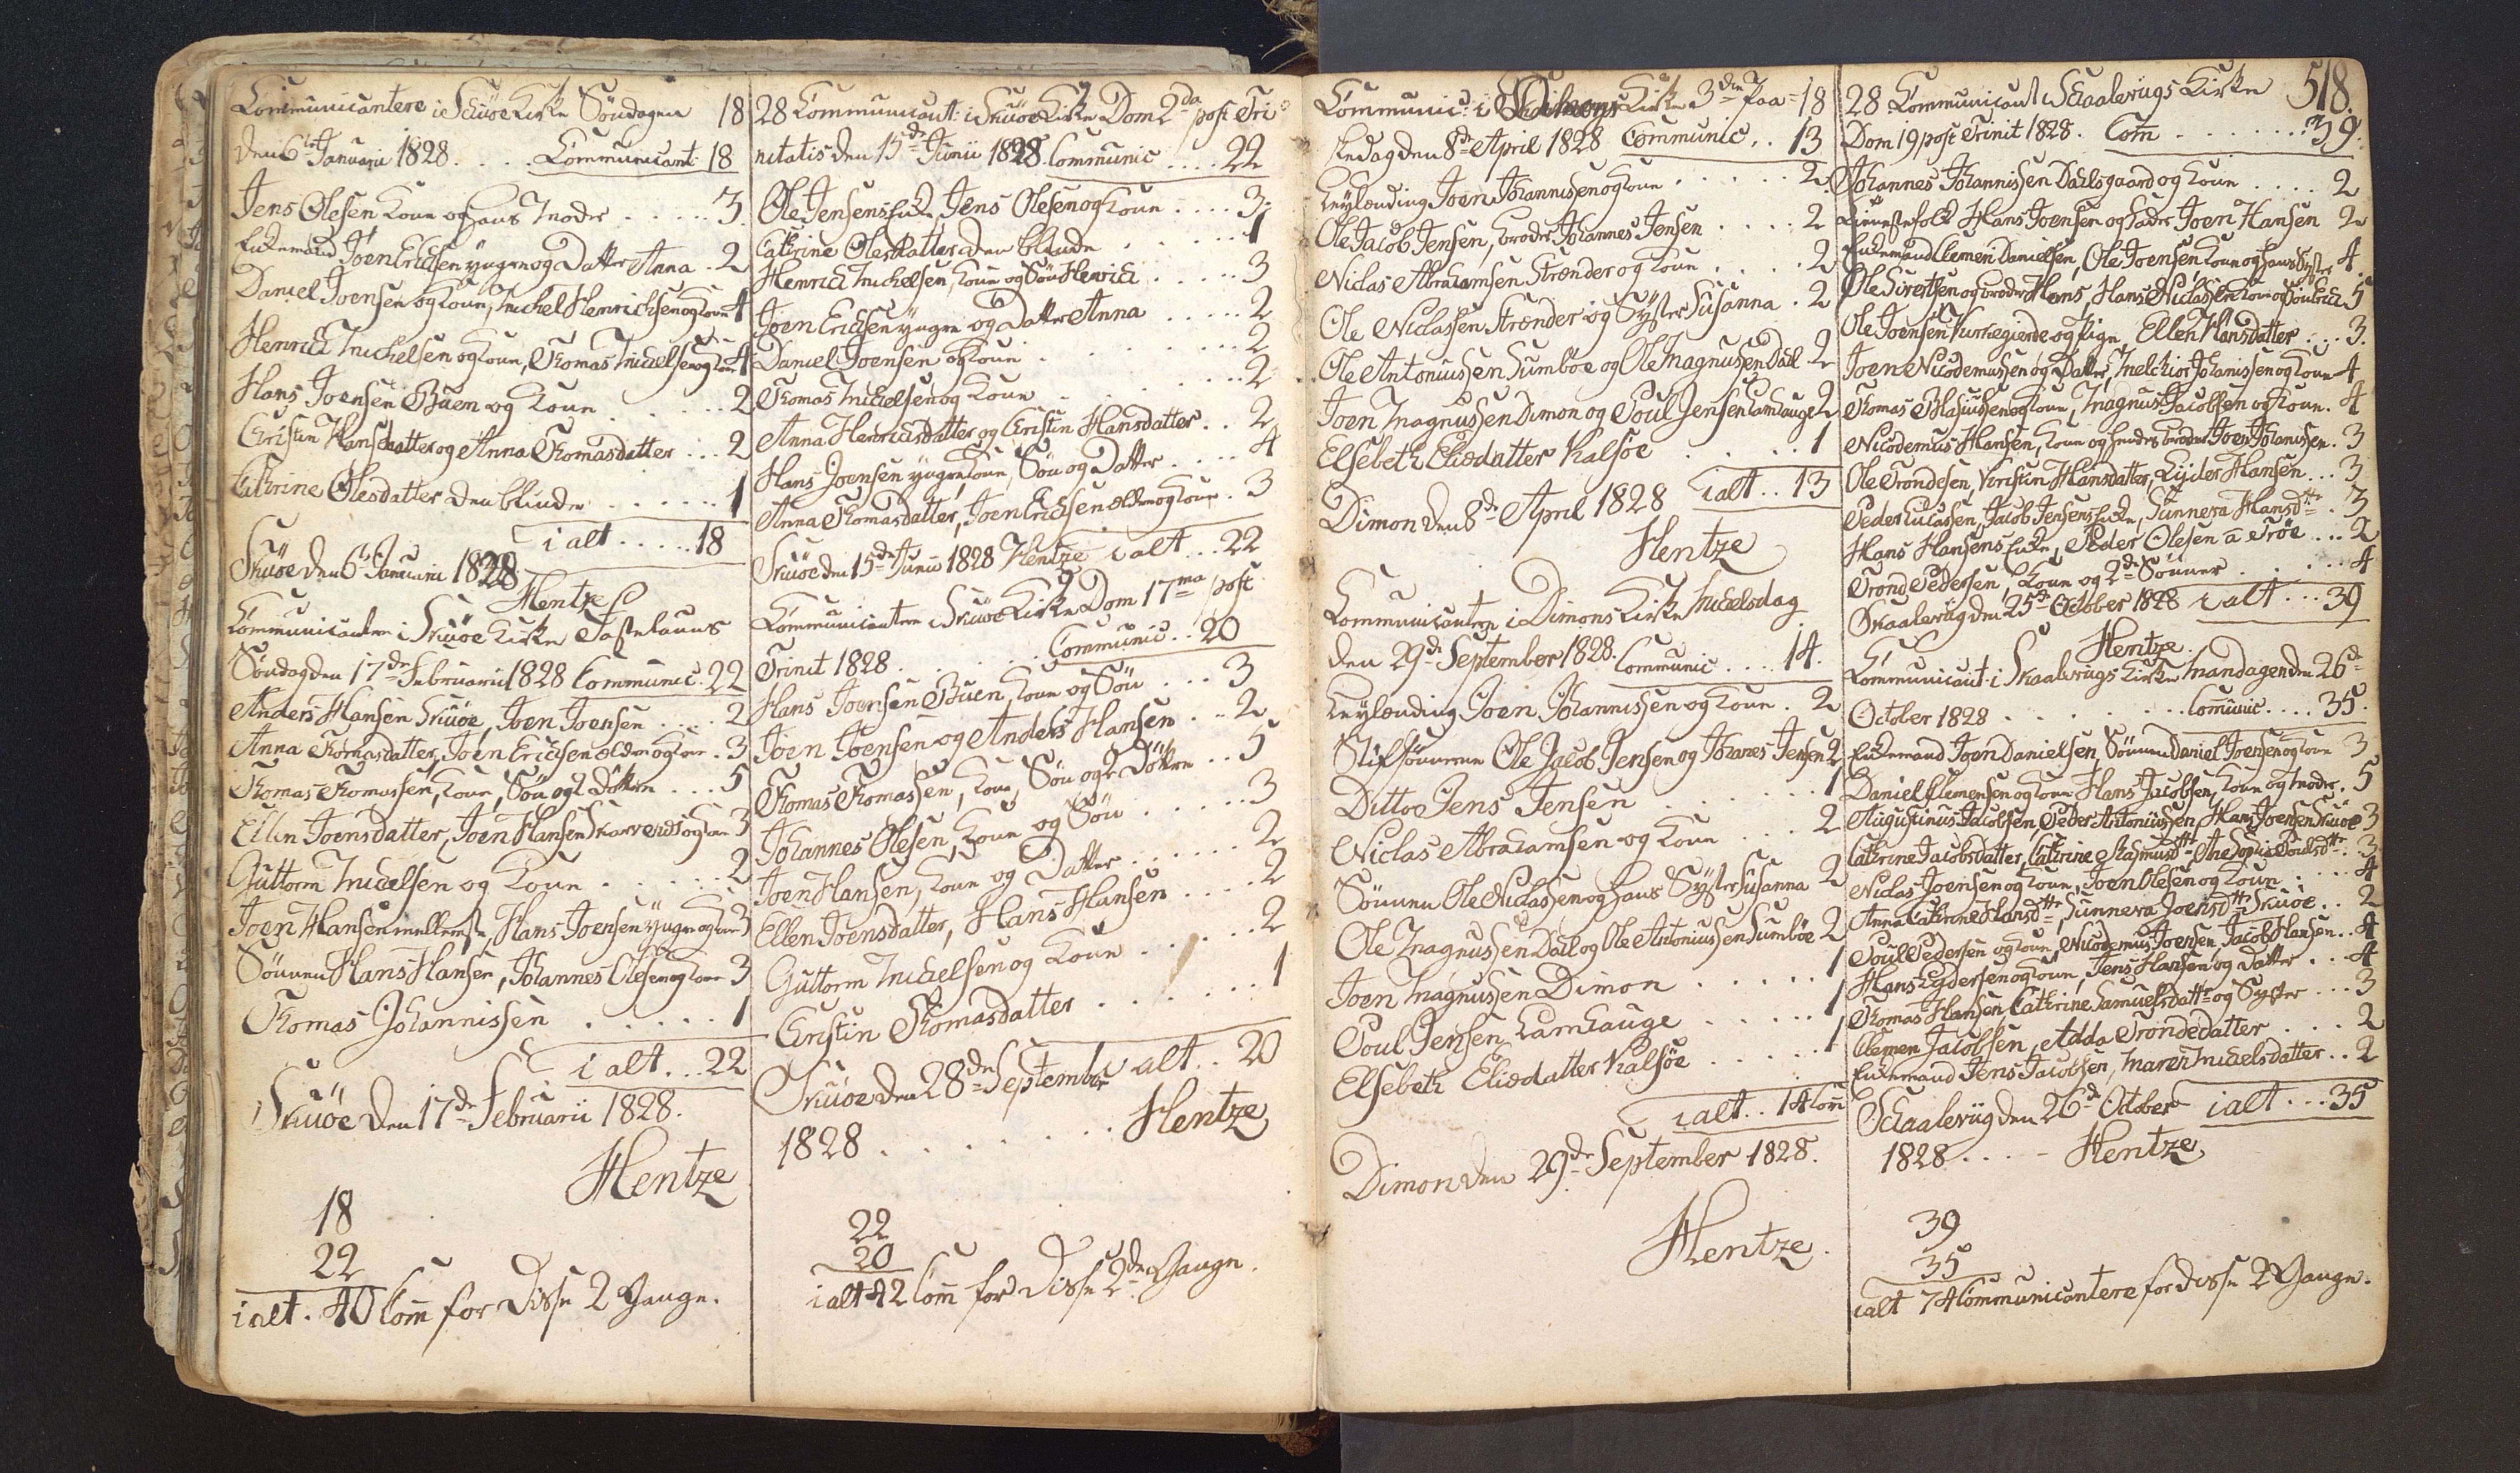 Communicantere i Skuøe Kirke Søndagen 18
den 6te Januarii 1828 . . . . Communicant: 18
Jens Olesen Kone og hans Moder . . . . . 3
Enkemand Joen Erichsen yngre og Datter Anna . 2
Daniel Joensen og Kone, Michel Henrichsen og Kone 4
Henrich Michelsen og Kone, Thomas Michelsen og Kone 4
Hans Joensen Buen og Kone . . . . . 2
Christin Hansdatter og Anna Thomasdatter . . . 2
Cathrine Olesdatter den blinde . . . . . . 1
i alt . . . . . 18
Skuøe den 6te Januarii 1828
Hentze
Communicantere i Skuøe Kirke Fastelauns
Søndag den 17de Februarii 1828 Communic. 22
Anders Hansen Skuøe, Joen Joensen . . . . 2
Anna Thomasdatter, Joen Erichsen ældre og Kone . 3
Thomas Thomassen, Kone, Søn og 2 Døttre . . . 5
Ellen Joensdatter, Joen Hansen Skarvenes og Kone 3
Guttorm Michelsen og Kone . . . . . 2
Joen Hansen mellemste, Hans Joensen yngre og Kone 3
Sønnen Hans Hansen, Johannes Olesen og Kone 3
Thomas Johannissen . . . . . 1
i alt . . . 22
Skuøe den 17de Februarii 1828.
Hentze
18
22
i alt . 40 Com̅ for disse 2 Gange.
28 Communicant: i Skuøe Kirke Dom 2da post Tri
nitatis den 15de Junii 1828. Communic . . . . 22
Ole Jensens Enke, Jens Olesen og Kone . . . . 3
Cathrine Olesdatter den blinde . . . . . . 1
Henrich Michelsen, Kone og Søn Henrich . . . . 3
Joen Erichsen yngre og Datter Anna . . . . . 2
Daniel Joensen og Kone . . . . . . . 2
Thomas Michelsen og Kone . . . . . . 2
Anna Henrichsdatter og Christin Hansdatter . . 2
Hans Joensen yngre, Kone, Søn og Datter . . . . 4
Anna Thomasdatter, Joen Erichsen ældre og Kone . 3
Skuøe den 15de Junii 1828 Hentze i alt . . . 22
Communicantere i Skuøe Kirke Dom 17ma post
Trinit 1828 . . . . . Communic . . 20
Hans Joensen Buen, Kone og Søn . . . 3
Joen Joensen og Anders Hansen . . . 2
Thomas Thomassen, Kone, Søn og 2 Døttre . . 5
Johannes Olesen, Kone og Søn . . . . . 3
Joen Hansen, Kone og Datter . . . . . . 2
Ellen Joensdatter, Hans Hansen . . . . . 2
Guttorm Michelsen og Kone . . . . . 2
Christin Thomasdatter . . . . . . 1
Skuøe den 28de September i alt . . 20
1828 . . . . . . . . Hentze
22
20
i alt 42 Com̅ for disse 2de Gange.
Communic: i Dimons Kirke 3die Paa- 18
skedag den 8de April 1828 Communic . . 13
Leylænding Joen Johannissen og Kone . . . . . 2
Ole Jacob Jensen, broder Johannes Jensen . . . . 2
Niclas Abrahamsen Strænder og Kone . . . . . 2
Ole Niclassen Strænder og Syster Susanna . 2
Ole Antoniussen Sumbøe og Ole Magnussen Dahl 2
Joen Magnussen Dimon og Poul Jensen Lamhauge 2
Elsebeth Eliædatter Kalsøe . . . . . 1
Dimon den 8de April 1828 i alt . . 13
Hentze
Communicantere i Dimons Kirke Michelsdag
den 29de September 1828. Communic . . . . 14.
Leylænding Joen Johannissen og Kone . 2
Stifsønnerne Ole Jacob Jensen og Johanes Jensen 2
Dittoe Jens Jensen . . . . . . . 1
Niclas Abrahamsen og Kone . . . . 2
Sønnen Ole Niclassen og hans Syster Susanna 2
Ole Magnussen Dahl og Ole Antoniussen Sumbøe 2
Joen Magnussen Dimon . . . . . . 1
Poul Jensen Lamhauge . . . . . 1
Elsebeth Eliædatter Kalsøe . . . . . 1
i alt . . 14 Com̅
Dimon den 29de September 1828.
Hentze.
28 Communicant i Skaalevigs Kirke 518.
Dom 19 post Trinit 1828. Com . . . . . . . 39.
Johannes Johannissen Dahlsgaard og Kone . . . . 2
Tienestefolk Hans Joensen og Fader Joen Hansen 2
Enkemand Clemen Danielsen, Ole Joensen Kone og hans Syster 4
Ole Sivertsen og broder Hans, Hans Niclassen Kone og 5
Ole Joensen Kirkegierde og Pige, Ellen Hansdatter . . . . 3.
Joen Nicodemussen og Datter, Melchior Johanissen og Kone 4
Thomas Blasiussen og Kone, Magnus Jacobsen og Kone . 4
Nicodemus Hansen, Kone og hendes broder Joen Johanissen . 3
Ole Trondesen, Christin Hansdatter, Eyder Hansen . . . 3
Peder Lucassen, Jacob Jensens Enke, Sunneva Hansdtr . 3
Hans Hansens Enke, Peder Olesen a Trøe . . . 2
Trond Pedersen, Kone og 2de Sønner . . . . . . 4
Skaalevig den 25de October 1828 i alt . . . 39
Hentze.
Communicant: i Skaalevigs Kirke Mandagen den 26de
October 1828 . . . . . . . Communic . . . . 35.
Enkemand Joen Danielsen, Sønnen Daniel Joensen og Kone 3
Daniel Clemensen og Kone Hans Jacobsen, Kone og Moder . 5
Augustinus Jacobsen, Peder Antoniussen, Hans Joensen Skuøe 3
Cathrine Jacobsdatter, Cathrine Rasmusdtr Ane Sophie Poulsdtr . 3
Niclas Joensen og Kone, Joen Olesen og Kone . . . . . 4
Anna Cathrine Hansdtr, Sunneva Joensdtr Skuøe . . 2
Poul Pedersen og Kone, Nicodemus Joensen, Jacob Hansen . . 4
Hans Eydersen og Kone, Jens Hansen og Datter . . . 4
Thomas Hansen, Cathrine Samuelsdatter og Syster . . . 3
Clemen Jacobsen, Adda Trondedatter . . . . 2
Enkemand Jens Jacobsen, Maren Michelsdatter . . 2
Skaalevig den 26de October i alt . . . 35
1828 . . . . - Hentze
39
35
i alt 74 Communicantere for disse 2 Gange.